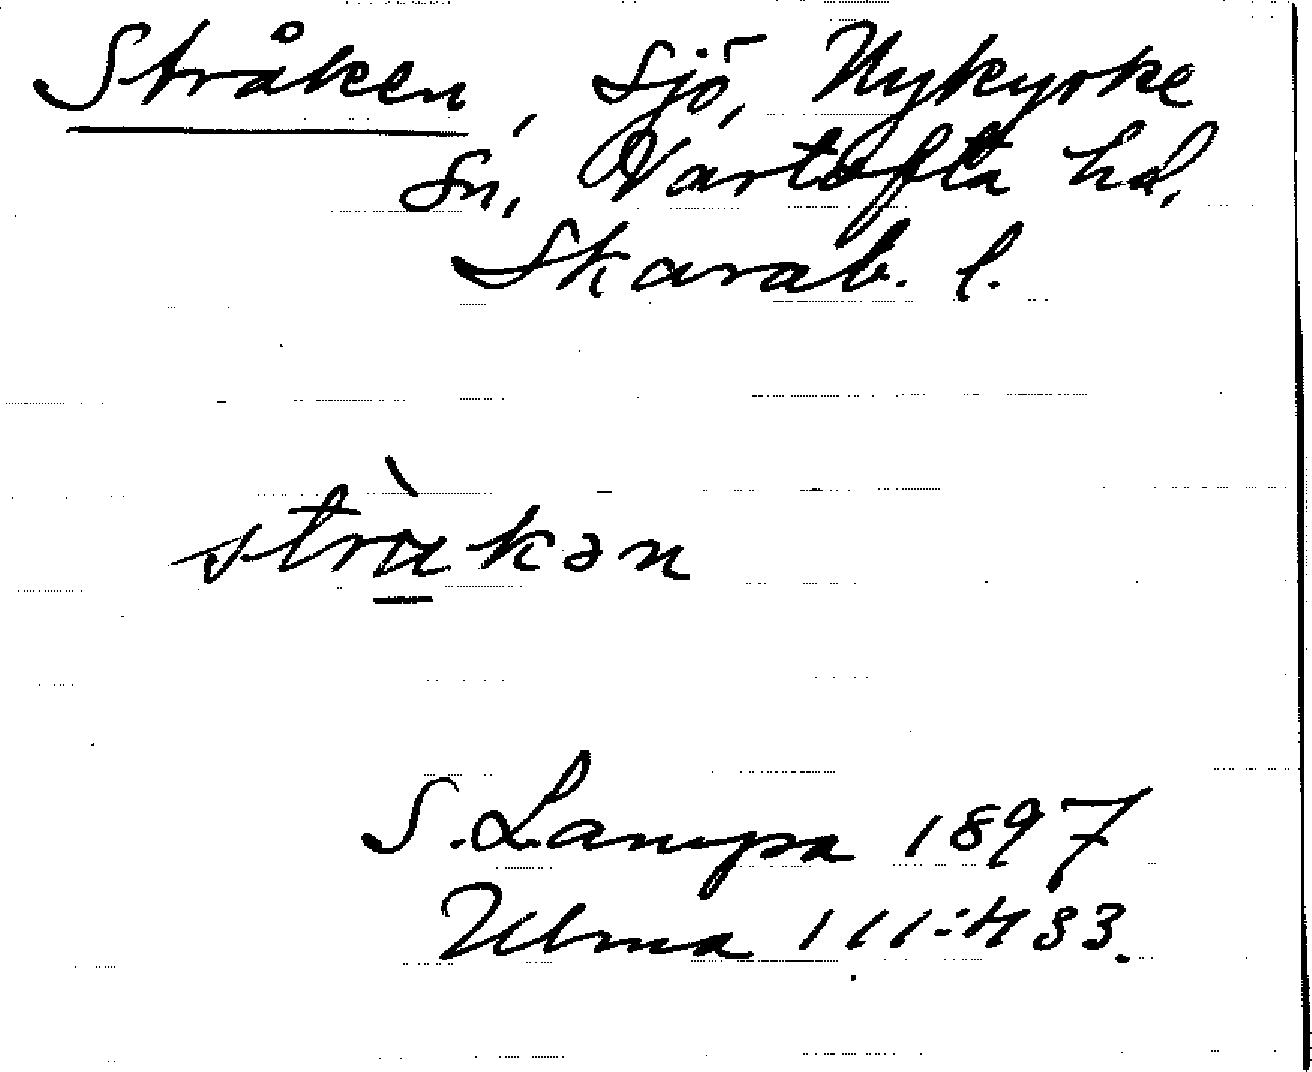 Stråken, sjö, Nykyrke
sn, Vartofta hd,
Skarab. l.
stràkən
S. Lampa 1897
Ulma 111:483.